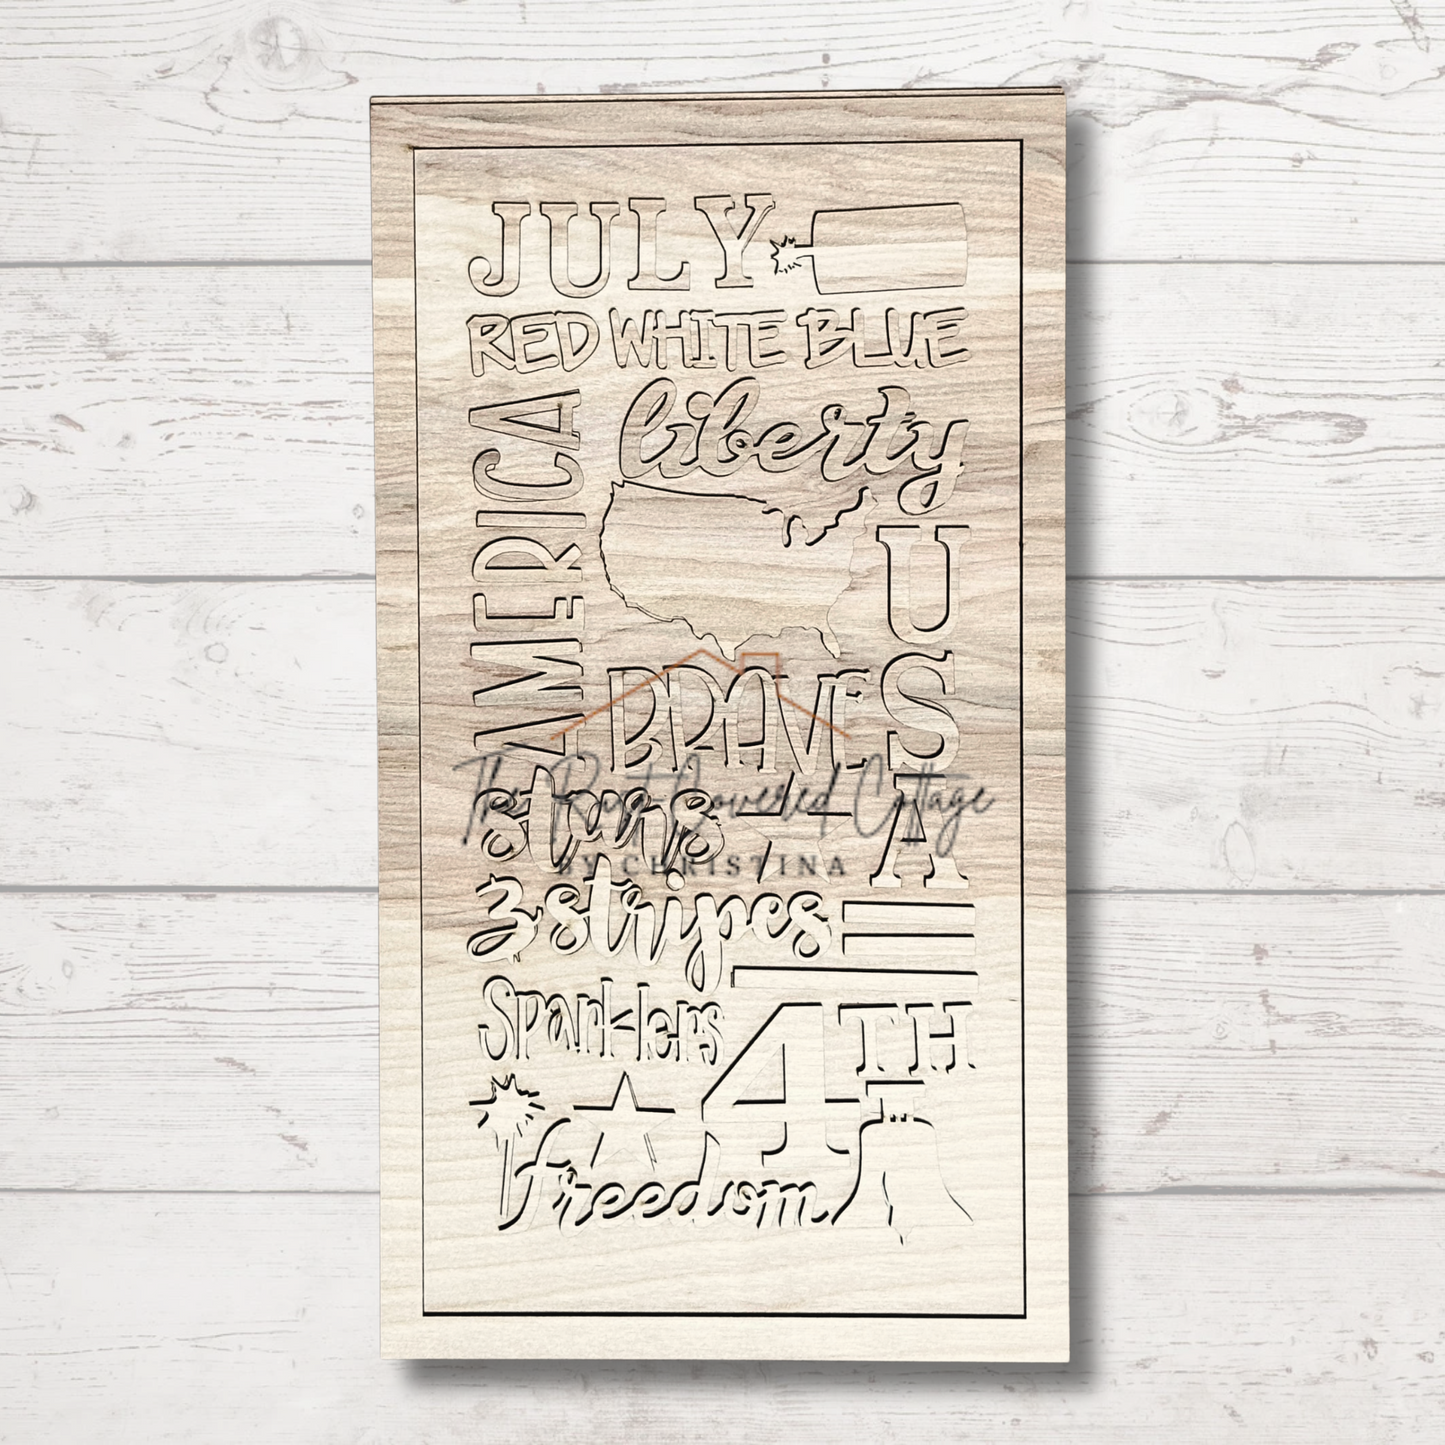 JULY
RED WHITE BLUE
AMERICA
liberty
USA
BRAVE
stars
The Rust Covered Cottage
BY CHRISTINA
& stripes
Sparklers
4TH
freedom